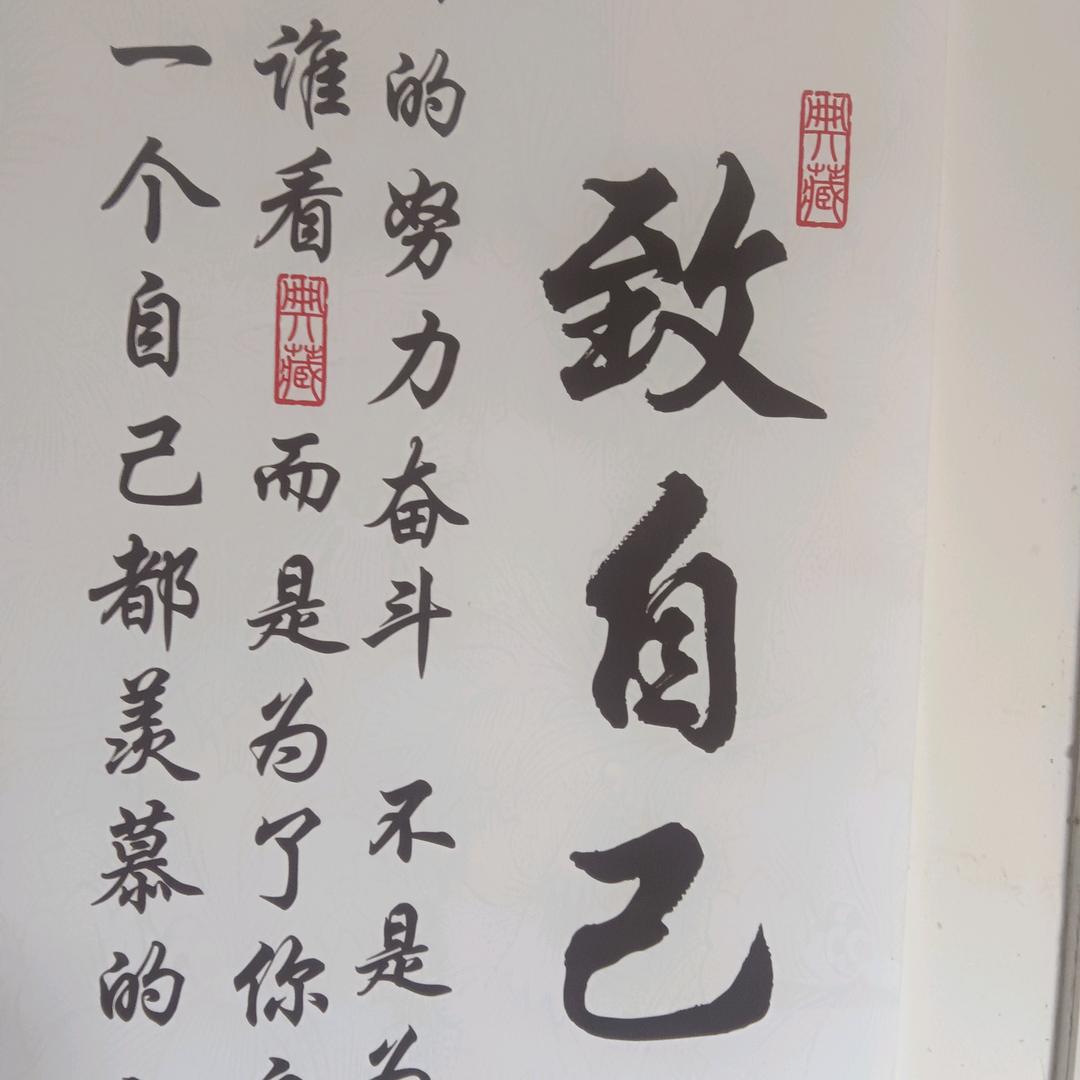 典藏
致自己
的努力奋斗 不是为
谁看 典藏 而是为了你
一个自己都羡慕的